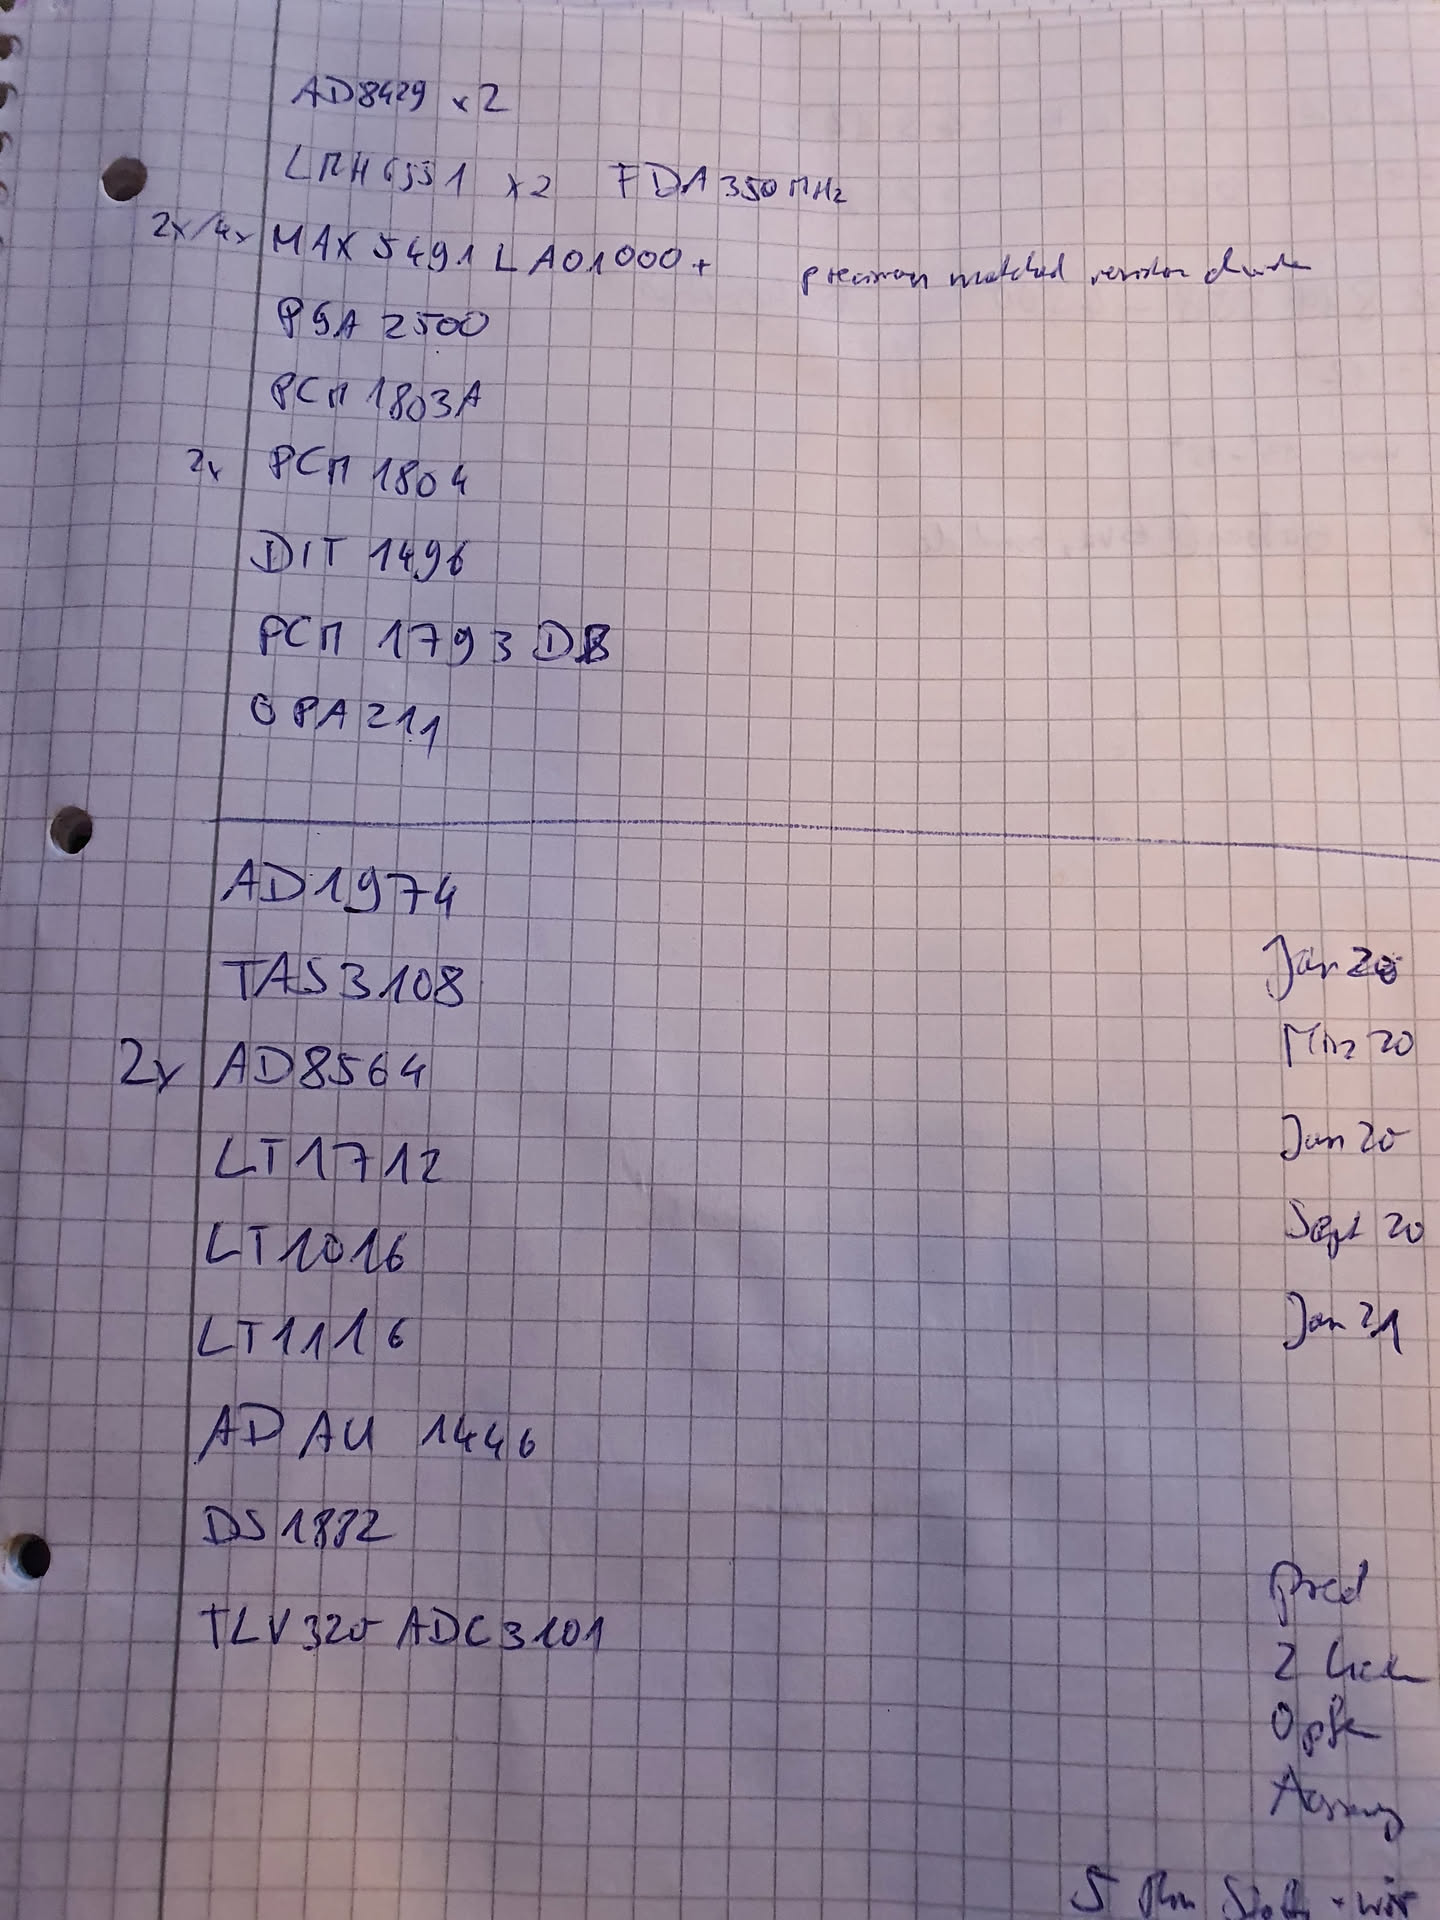 AD8429 x2
LMH6551 x2 FDA 350 MHz
2x/4x MAX5491LA01000+ precision matched resistor
PGA 2500
PCM 1803A
2x PCM 1804
DIT 1496
PCM 1793 DB
OPA211
AD1974
TAS3108
Jan 20
2x AD8564
März 20
LT1712
Jun 20
LT1016
Sept 20
LT1116
Jan 21
ADAU 1446
DS1882
TLV320ADC3101
2
5